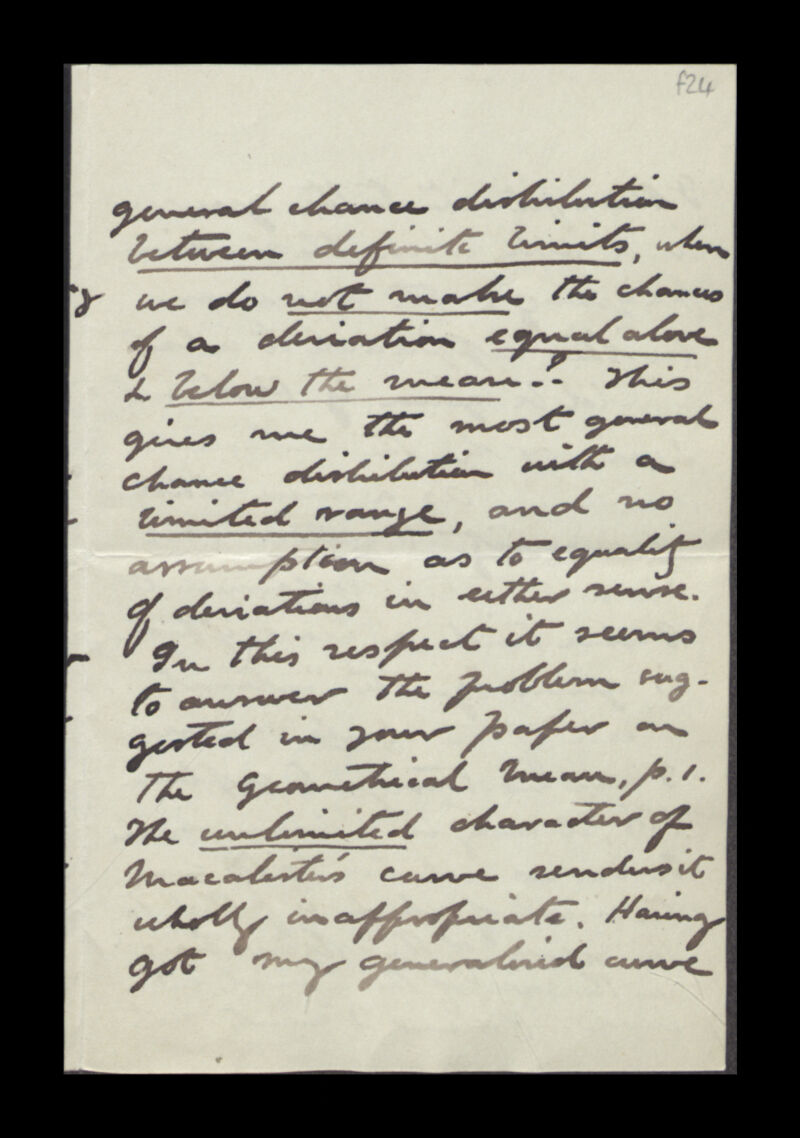 f24
general chance distribution
between definite limits, when
we do not make the chances
of a deviation equal above
& below the mean?. This
gives me the most general
chance distribution with a
limited range, and no
assumption as to equality
of deviations in either sense.
In this respect it seems
to answer the problem sug-
gested in your paper on
the Geometrical Mean, p. 1.
The unlimited character of
Macalister's curve renders it
wholly inappropriate. Having
got my generalised curve